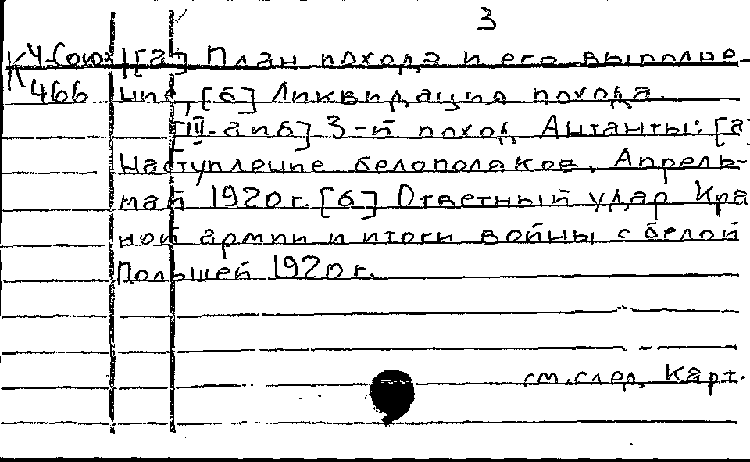 3
К 4-Союз [а] План похода и его выполне-
466 ние, [б] Ликвидация похода.
[III-а и б] 3-й поход Антанты: [а]
Наступление белополяков. Апрель-
май 1920 г. [б] Ответный удар Кра
ной армии и итоги войны с белой
Польшей 1920 г.
см. след. Карт.